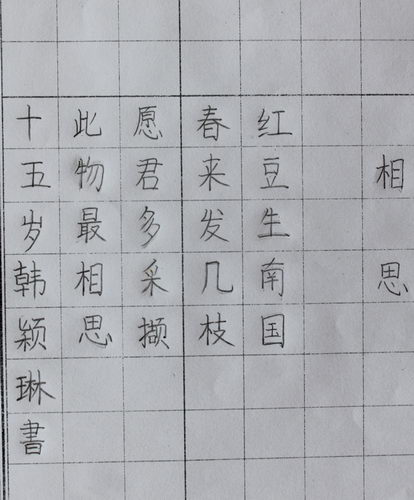 相思
红豆生南国
春来发几枝
愿君多采撷
此物最相思
十五岁韩颖琳書